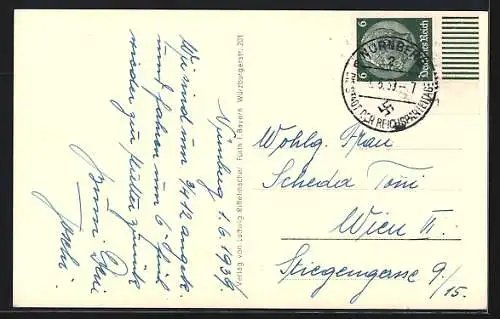 Nürnberg 1. 6 1939.
Wir sind um 3/4 12 angek.
und fahren um 6 Uhr
wieder zur Mutter zurück
Bussi Dein
Joschi.
Verlag von Ludwig Riffelmacher Fürth i. Bayern Würzburgerstr. 201
6 6
Deutsches Reich
NÜRNBERG
2
DIE STADT DER REICHSPARTEITAGE
Wohlg. Frau
Scheda Toni
Wien II.
Stiegengasse 9/15.